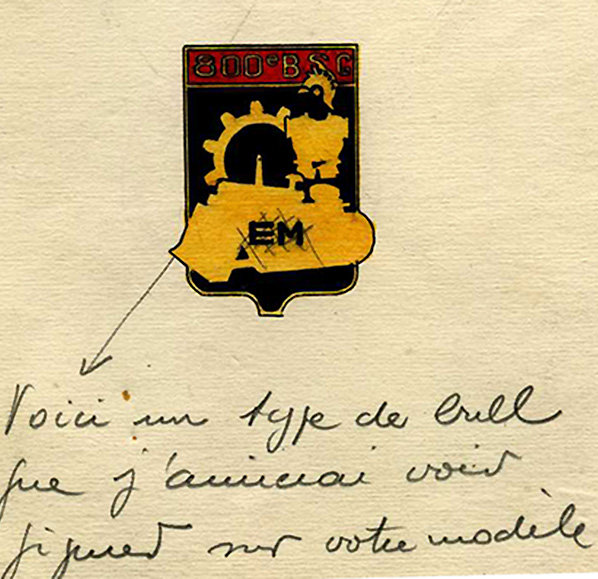 800e BSG
EM
Voici un type de bull
que j'aimerai voir
figurer sur votre modèle